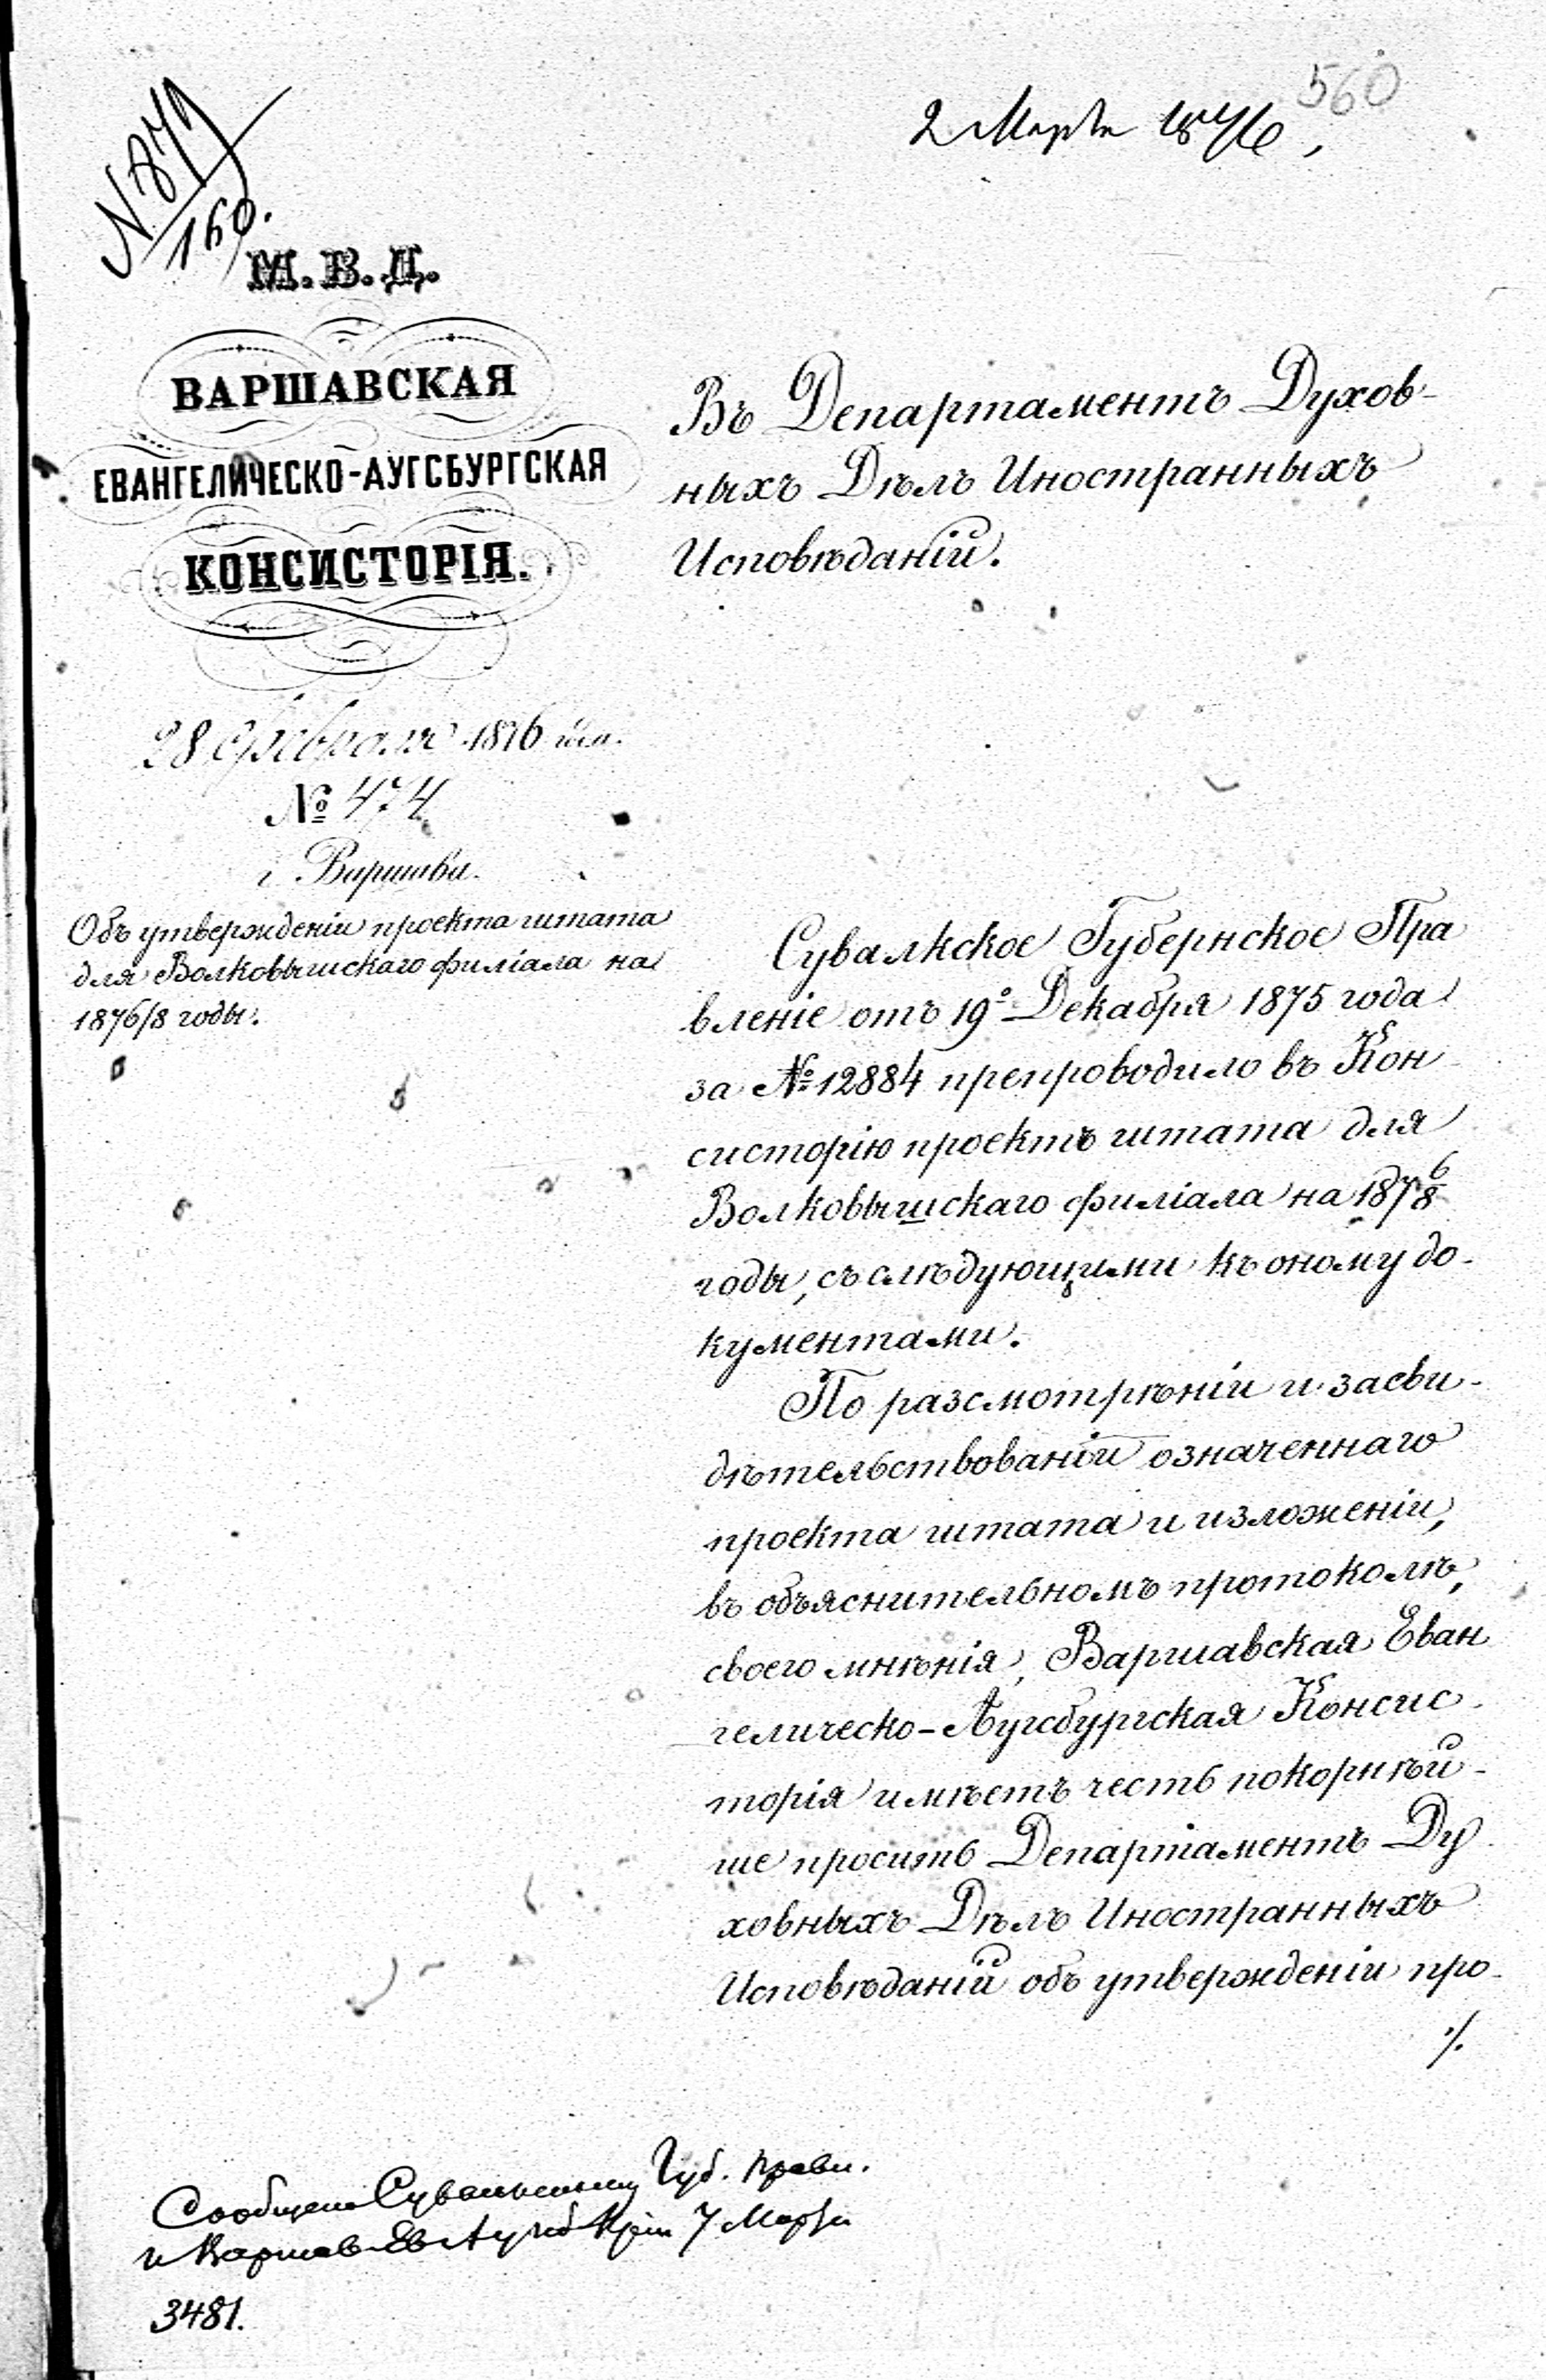 560
2 Марта 1876,
N 879
160.
М.В.Д.
ВАРШАВСКАЯ
ЕВАНГЕЛИЧЕСКО-АУГСБУРГСКАЯ
КОНСИСТОРІЯ.
28 Февраля 1876 дня.
№ 474
г. Варшава.
Объ утвержденіи проекта штата
для Волковышскаго филіала на
1876/8 годы.
Въ Департаментъ Духов-
ныхъ Дѣлъ Иностранныхъ
Исповѣданій.
Сувалкское Губернское Пра
вленіе отъ 19º Декабря 1875 года
за № 12884 препроводило въ Кон
систорію проектъ штата для
Волковышскаго филіала на 187 6/8
годы, съ слѣдующими къ оному до-
кументами.
По разсмотрѣніи и засви-
дѣтельствованіи означеннаго
проекта штата и изложеніи,
въ объяснительномъ протоколѣ,
своего мнѣнія, Варшавская Еван
гелическо-Аугсбургская Консис-
торія имѣетъ честь покорнѣй-
ше проситъ Департаментъ Ду
ховныхъ Дѣлъ Иностранныхъ
Исповѣданій объ утвержденіи про-
./.
Сообщено Сувалкскому Губ. Правл.
и Варшав. Ев. Аугсб. 7 Марта
3481.